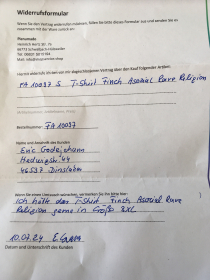 Widerrufsformular
Wenn Sie den Vertrag widerrufen möchten, füllen Sie bitte dieses Formular aus und senden Sie es
zusammen mit der Ware zurück an:
Heinrich-Hertz-Str.
Mail:
Hiermit widerrufe ich den von mir abgeschlossenen Vertrag über den Kauf folgender Artikel:
FA 10037 S T-Shirt Finch Asozial Rave Religion
Bestellnummer: FA 10037
Name und Anschrift des Kunden
Eric
46537 Dinslaken
Wenn Sie einen Umtausch wünschen, vermerken Sie ihn bitte hier:
Ich hätte das T-Shirt Finch Asozial Rave
Religion gerne in Größe 2XL
10.07.24
Datum und Unterschrift des Kunden